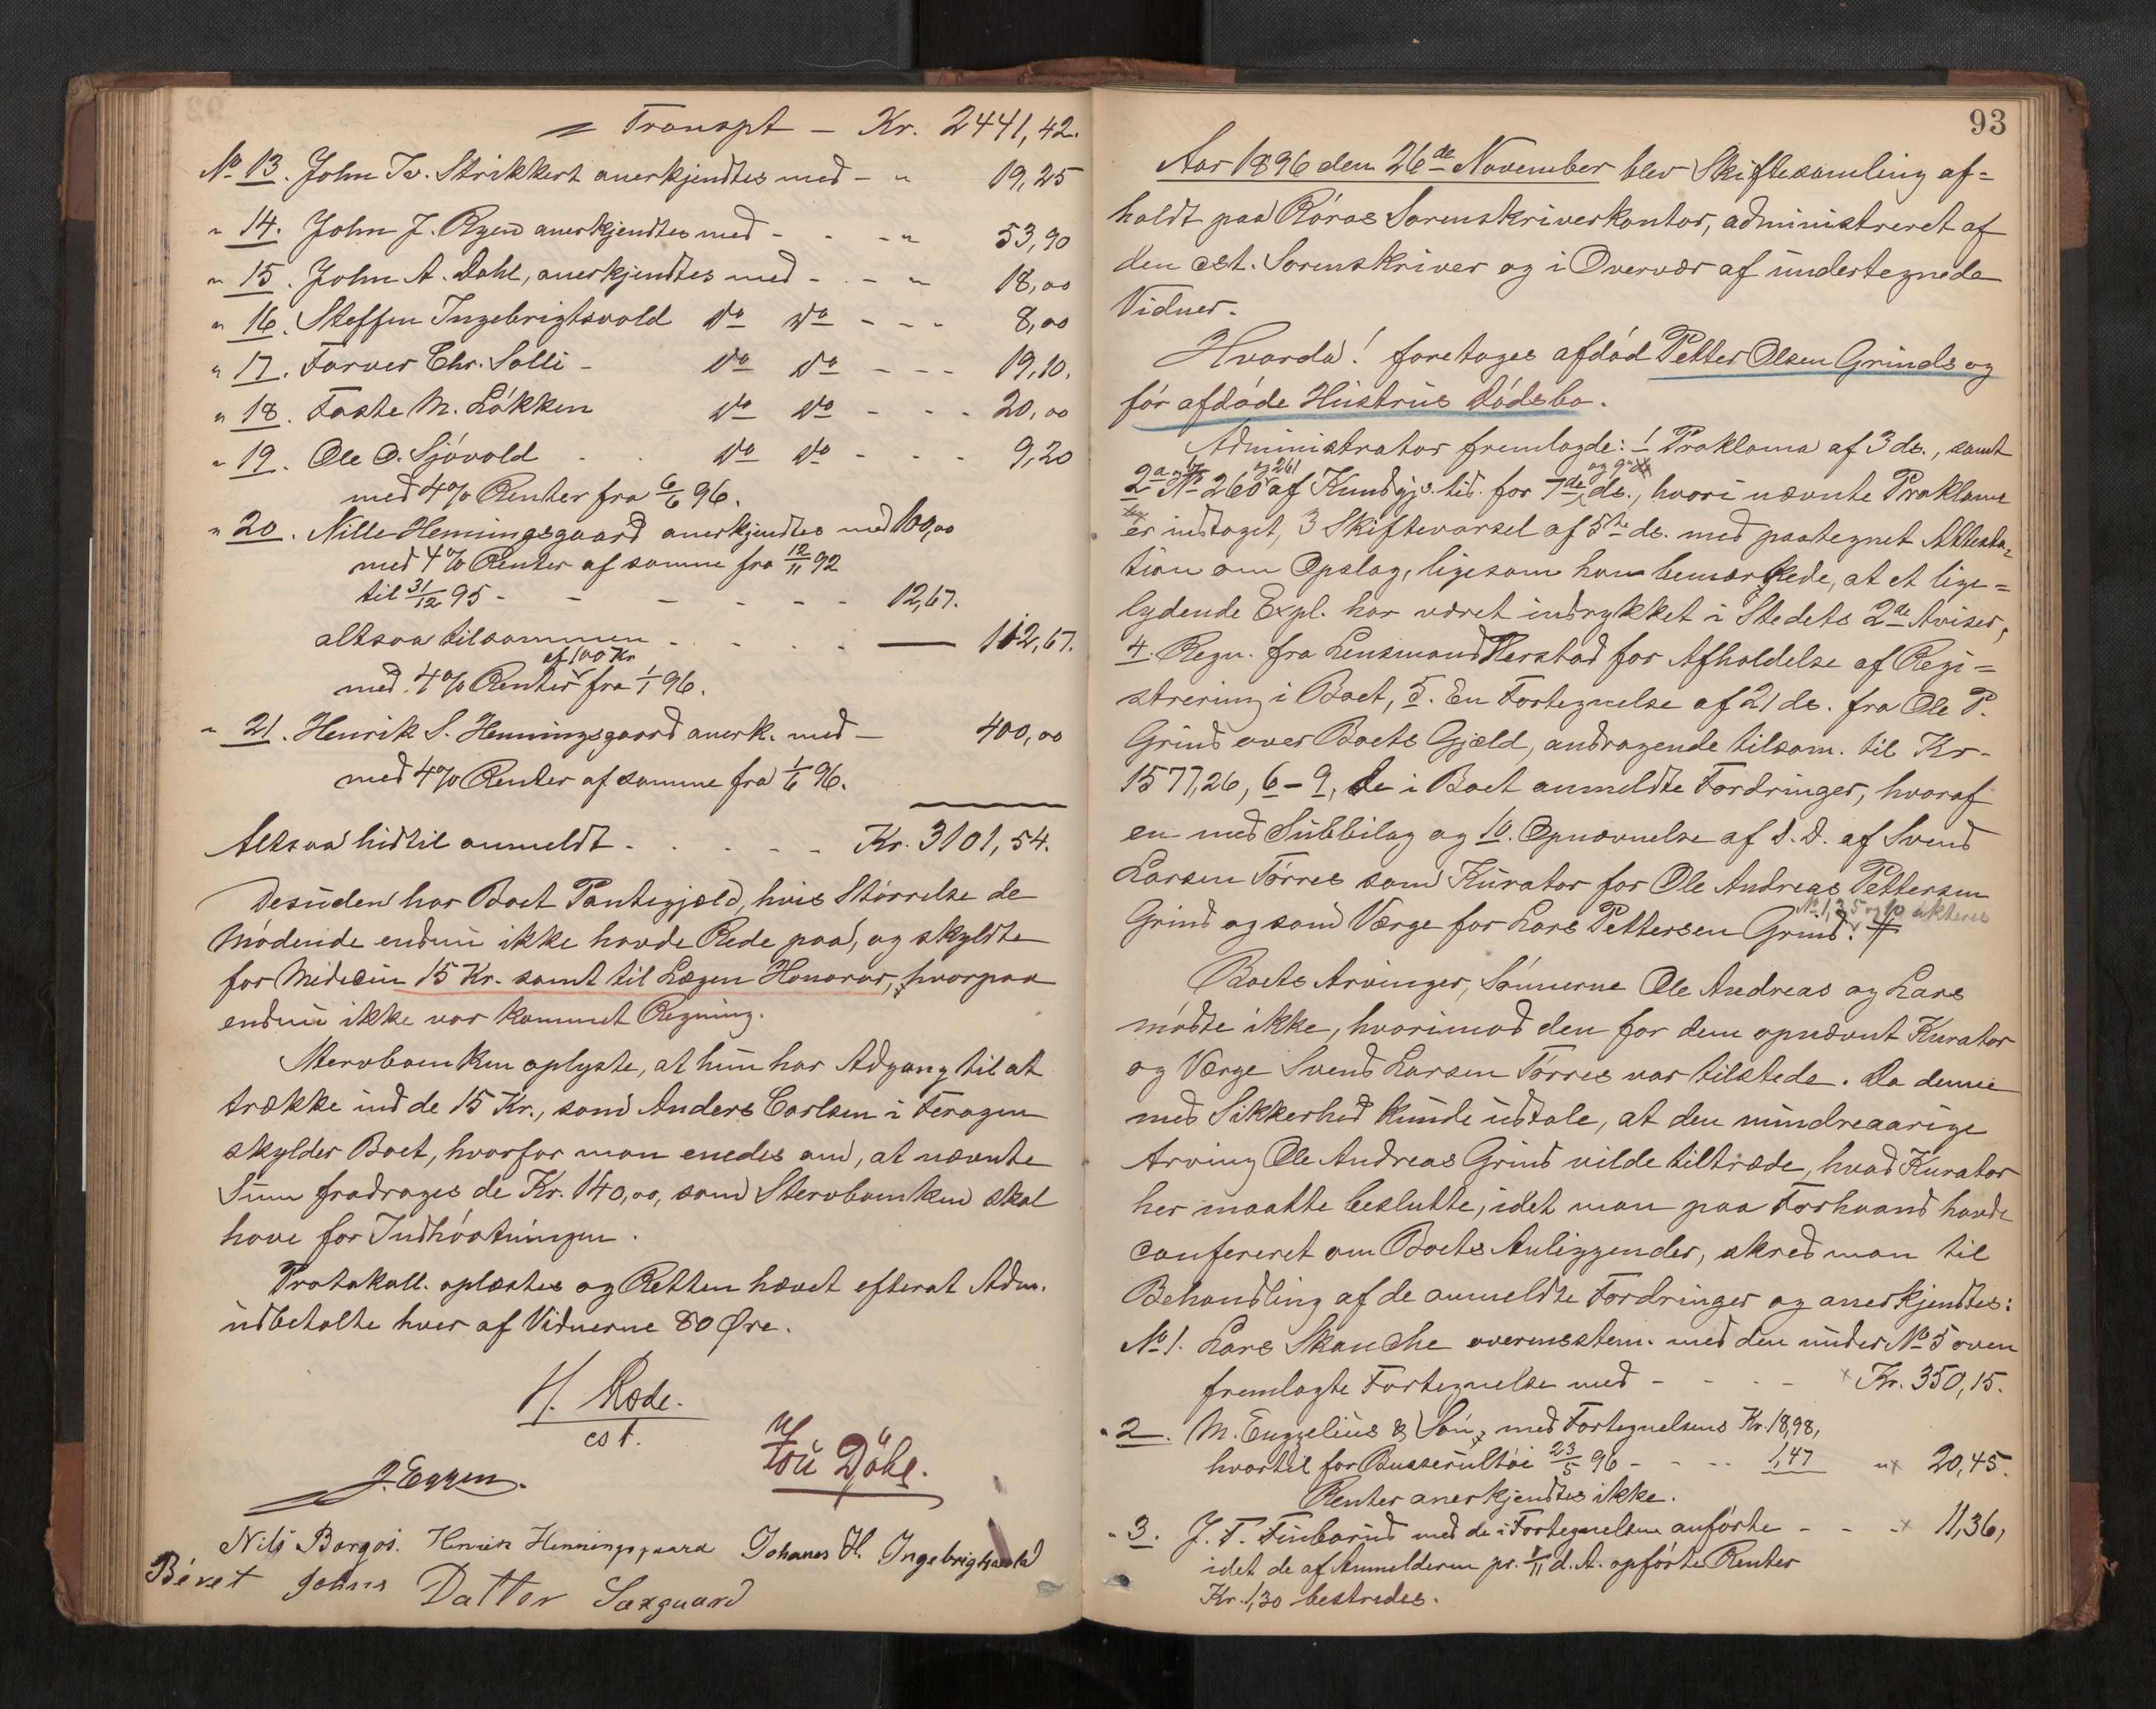 = Transpt - Kr. 2441,42.
No 13. John Iv. Strikkert anerkjendtes med - " 19,25
" 14. John J. Ryen anerkjendtes med - - - " 53,90
" 15. John A. Dahl, anerkjendtes med - - - " 18,00
" 16. Steffen Ingebrigtsvold do do - - - 8,00
" 17. Farver Chr. Solli - do do - - - 19,10.
" 18. Faste M. Løkken do do - - - 20,00
" 19. Ole O. Sjøvold - - do do - - - 9,20
med 4% Renter fra 6/6 96.
" 20. Nille Henningsgaard anerkjendtes med 100,00
med 4% Renter af samme fra 12/11 92
til 31/12 95 - - - - - - - 12,67.
altsaa tilsammen - - - - 112,67.
med 4% Renter af 100 Kr fra 1/1 96.
" 21. Henrik S. Henningsgaard anerk. med - 400,00
med 4% Renter af samme fra 1/6 96.
Altsaa hidtil anmeldt - - - - - Kr. 3101,54.
Desuden har Boet Pantegjæld, hvis Størrelse de
Mødende endnu ikke havde Rede paa, og skyldte
for Medicin 15 Kr. samt til Lægen Honorar, hvorpaa
endnu ikke var kommet Regning.
Stervboenken oplyste, at hun har Adgang til at
trække ind de 15 Kr., som Anders Carlsen i Feragen
skylder Boet, hvorfor man enedes om, at nævnte
Sum fradrages de Kr. 140,00, som Stervboenken skal
have for Indhøstningen.
Protokoll. oplæstes og Retten hævet efterat Adm.
udbetalte hver af Vidnerne 80 Øre.
H. Rode.
cst.
J. Eggen. Döhl.
Nils Borgos. Henrik Henningsgaard Johanes H. Ingebrigtsvold
Béret Johns Datter Sæxguard
93
Aar 1896 den 26de November blev Skiftesamling af=
holdt paa Røros Sorenskriverkontor, administreret af
den cst. Sorenskriver og i Overvær af undertegnede
Vidner.
Hvorda! foretages afdød Petter Olsen Grinds og
før afdøde Hustrus Dødsbo.
Administrator fremlagde: 1 Proklama af 3 ds., samt
2 a og b No 260 og 261 af Kundgjs. tid. for 7de og 9de ds., hvori nævnte Proklama
er indtaget, 3 Skiftevarsel af 5te ds. med paategnet Attesta=
tion om Opslag, ligesom han bemærkede, at et lige=
lydende Expl. har været indrykket i Stedets 2de Aviser,
4. Regn. fra Lensmand Herstad for Afholdelse af Regi=
strering i Boet, 5. En Fortegnelse af 21 ds. fra Ole P.
Grind over Boets Gjæld, andragende tilsam. til Kr.
1577,26, 6-9, de i Boet anmeldte Fordringer, hvoraf
en med Subbilag og 10. Opnævnelse af d. D. af Svend
Larsen Tørres som Kurator for Ole Andreas Pettersen
Grind og som Værge for Lars Pettersen Grind. No 1, 3, 5 og 10 akteres
Boets Arvinger, Sønnerne Ole Andreas og Lars
mødte ikke, hvorimod den for dem opnævnt Kurator
og Værge Svend Larsen Tørres var tilstede. Da denne
med Sikkerhed kunde udtale, at den mindreaarige
Arving Ole Andreas Grind vilde tiltræde, hvad Kurator
her maatte beslutte, idet man paa Forhaand havde
confereret om Boets Anliggender, skred man til
Behandling af de anmeldte Fordringer og anerkjendtes:
No 1. Lars Skanche overensstem. med den under No 5 oven
fremlagte Fortegnelse med - - - - Kr. 350,15.
" 2. M. Engzelius & Søn, med Fortegnelsens Kr. 18,98,
hvortil for Busserultøi 23/5 96 - - - 1,47 " 20,45.
Renter anerkjendtes ikke.
" 3. J. F. Finborud med de i Fortegnelsen anførte - - - 11,36,
idet de af Anmelderen pr. 1/11 d. A. opførte Renter
Kr. 1,30 bestredes.